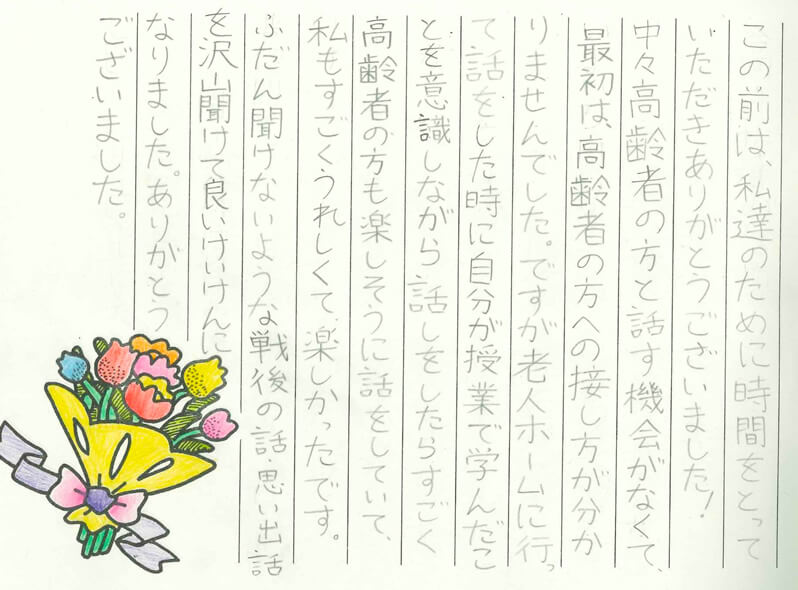 この前は、私達のために時間をとって
いただきありがとうございました!
中々高齢者の方と話す機会がなくて、
最初は、高齢者の方への接し方が分か
りませんでした。ですが老人ホームに行っ
て話をした時に自分が授業で学んだこ
とを意識しながら話しをしたらすごく
高齢者の方も楽しそうに話をしていて、
私もすごくうれしくて楽しかったです。
ふだん聞けないような戦後の話・思い出話
を沢山聞けて良いけいけんに
なりました。ありがとう
ございました。